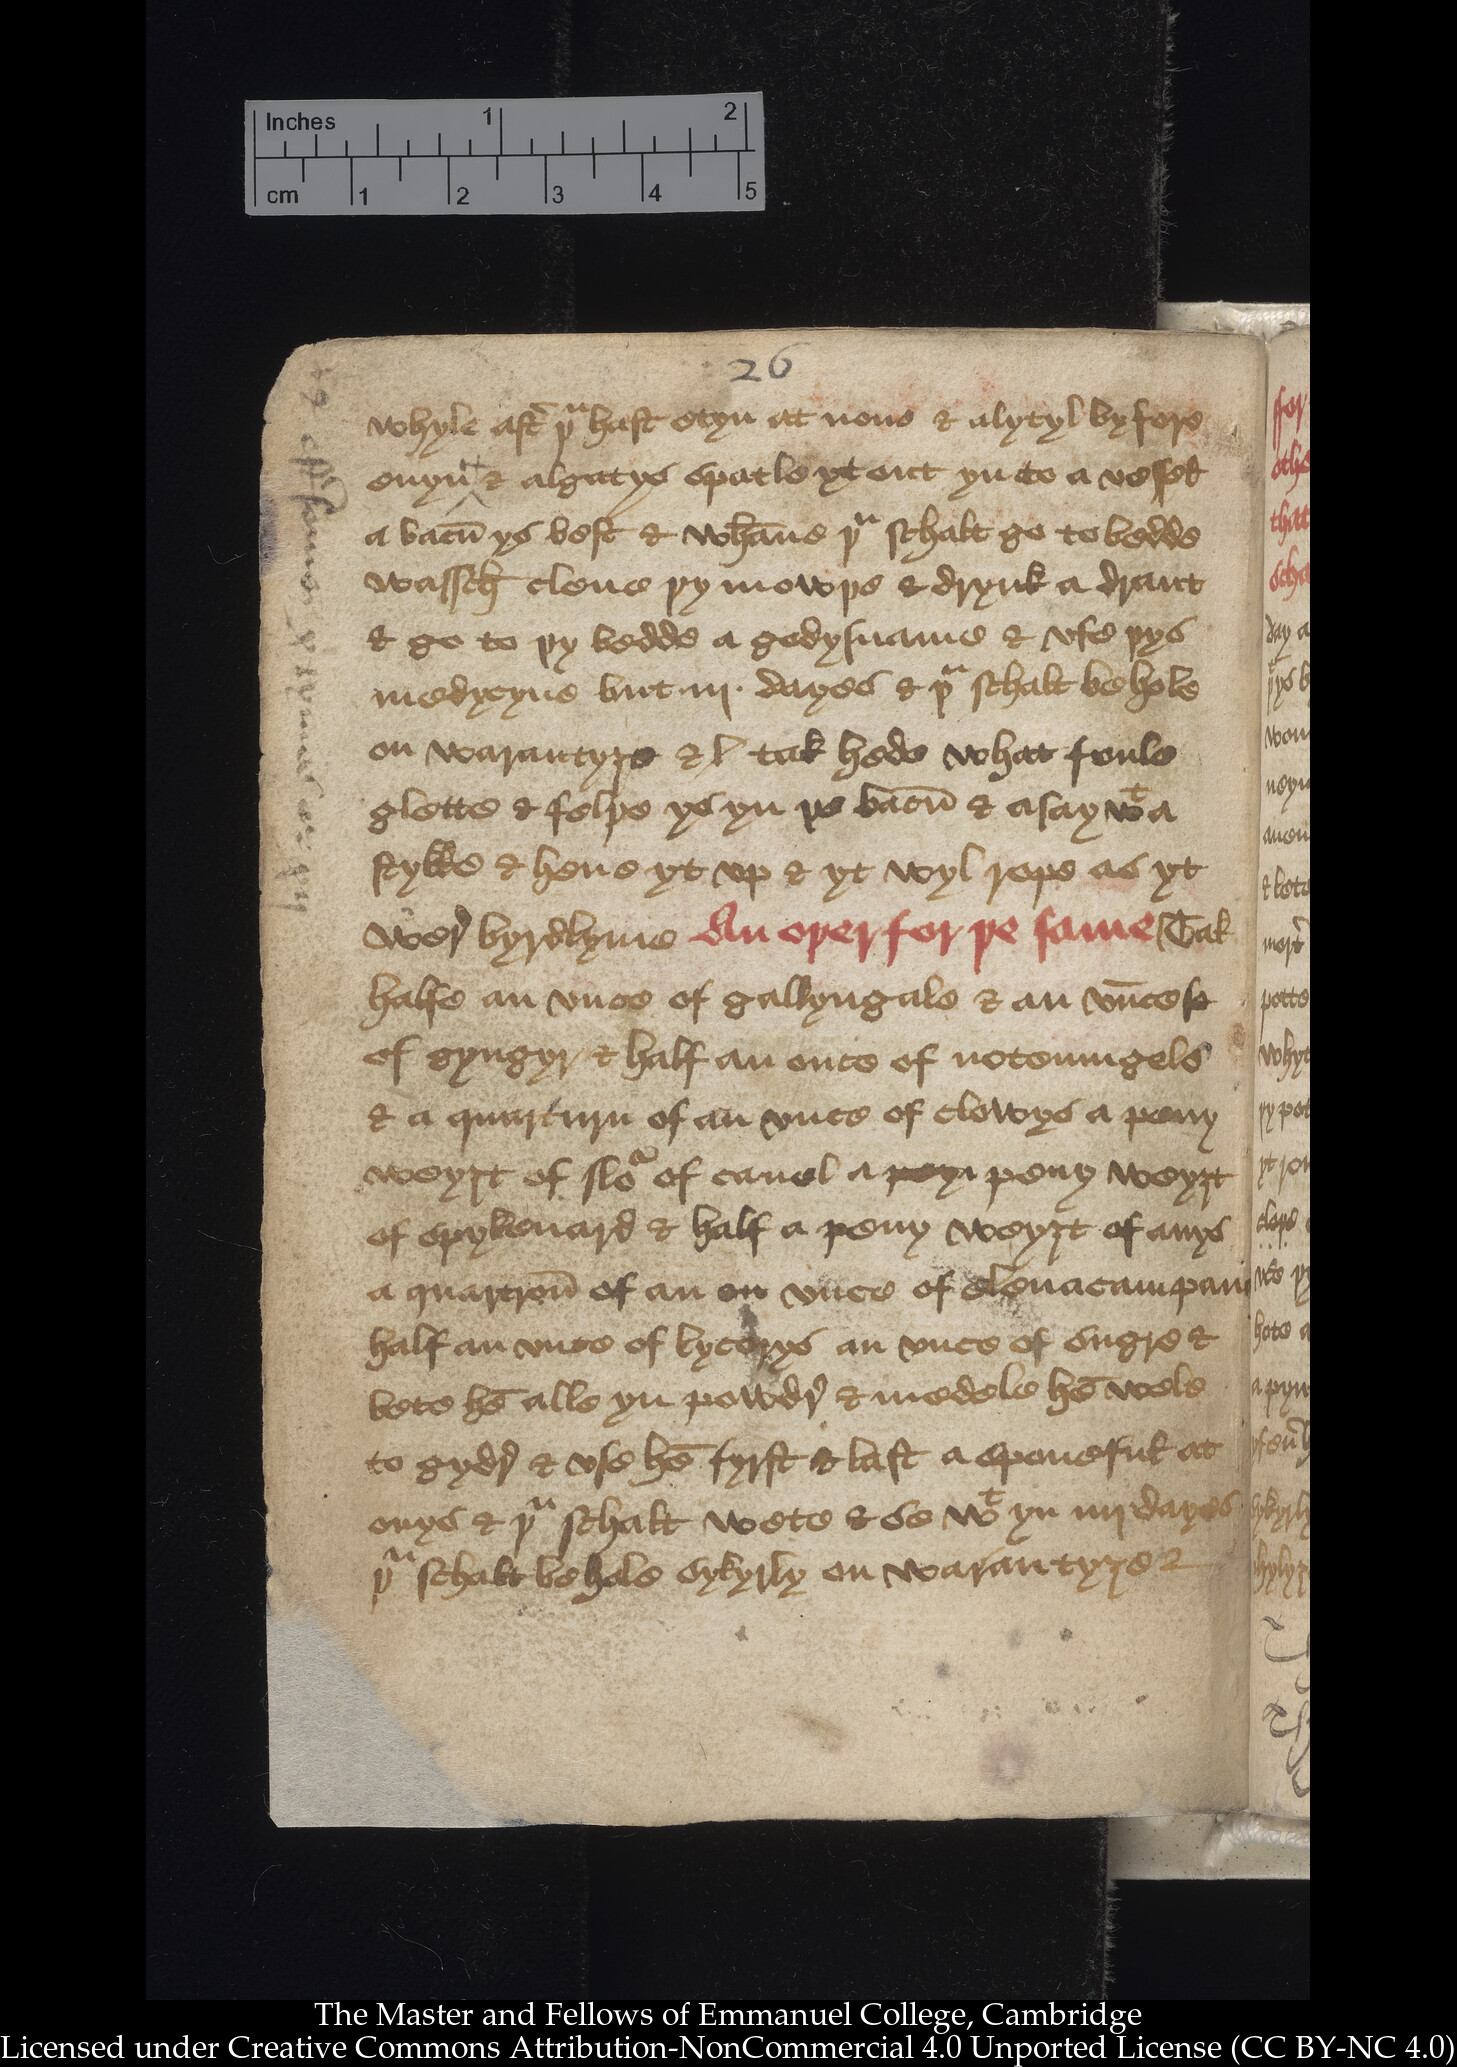 Inches 1 2
cm 1 2 3 4 5
26
whyle aft̄ þᵘ hast etyn at none & a lytyl byfore
euyn & algatys spatle yt out yn to a vessel
a bacū ys best & whāne þᵘ schalt go to bedde
wassch clene þy mowþe & drynk a draut
& go to þy bedde a godys name & vse þys
medycyne but .iij. dayes & þᵘ schalt be hole
on warantyse & tak hede what foule
glette & felþe ys yn þe bacū & asay wᵗ a
stykke & heue yt vp & yt wyl rope as yt
wer byrdlyme An oþer for þe same Tak
halfe an vnce of gallyngale & an vnce
of gyngyr & half an once of notemugels
& a quarturn of an vnce of clowys a peny
weyȝt of flōᵃ of canel a peny weyȝt
of spykenard & half a peny weyȝt of anys
a quartroū of an on vnce of elenacampani
half an vnce of lycorys an vnce of sugre &
bete hē alle yn powdr & medele hē wele
to gydr & vse hē fyrst & last a sponeful at
onys & þᵘ schalt wete & se wᵗ yn iiij dayes
þᵘ schalt be hole sykyrly on warantyse
The Master and Fellows of Emmanuel College, Cambridge
Licensed under Creative Commons Attribution-NonCommercial 4.0 Unported License (CC BY-NC 4.0)